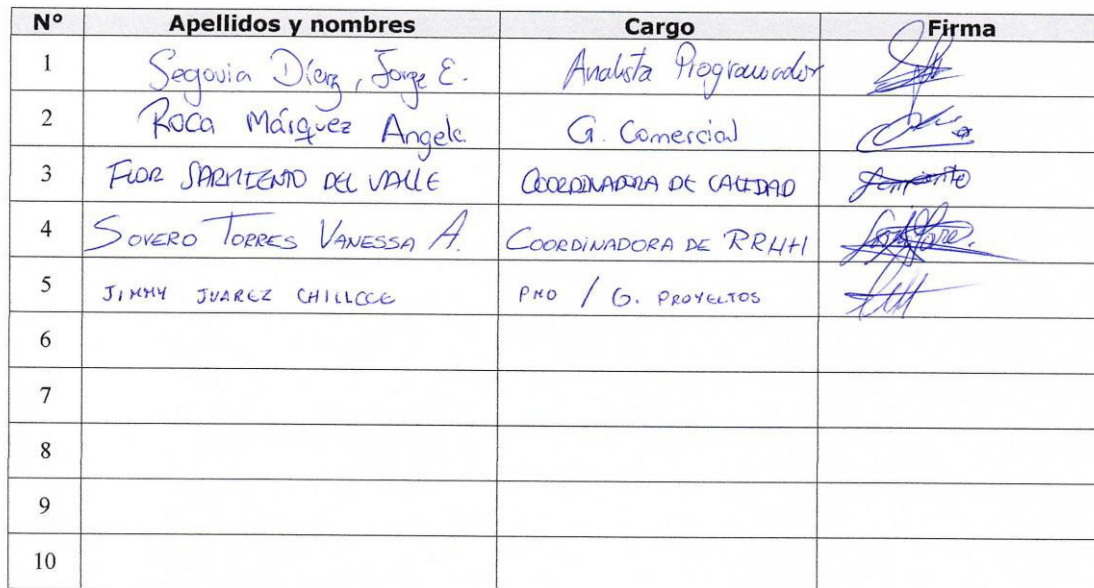 N° Apellidos y nombres Cargo Firma
1 Segovia Díaz, Jorge E. Analista Programador
2 Roca Márquez Angela G. Comercial
3 FLOR SARMIENTO DEL VALLE COORDINADORA DE CALIDAD
4 SOVERO TORRES VANESSA A. COORDINADORA DE RRHH
5 JIMMY JUAREZ CHILLCCE PMO / G. PROYECTOS
6
7
8
9
10